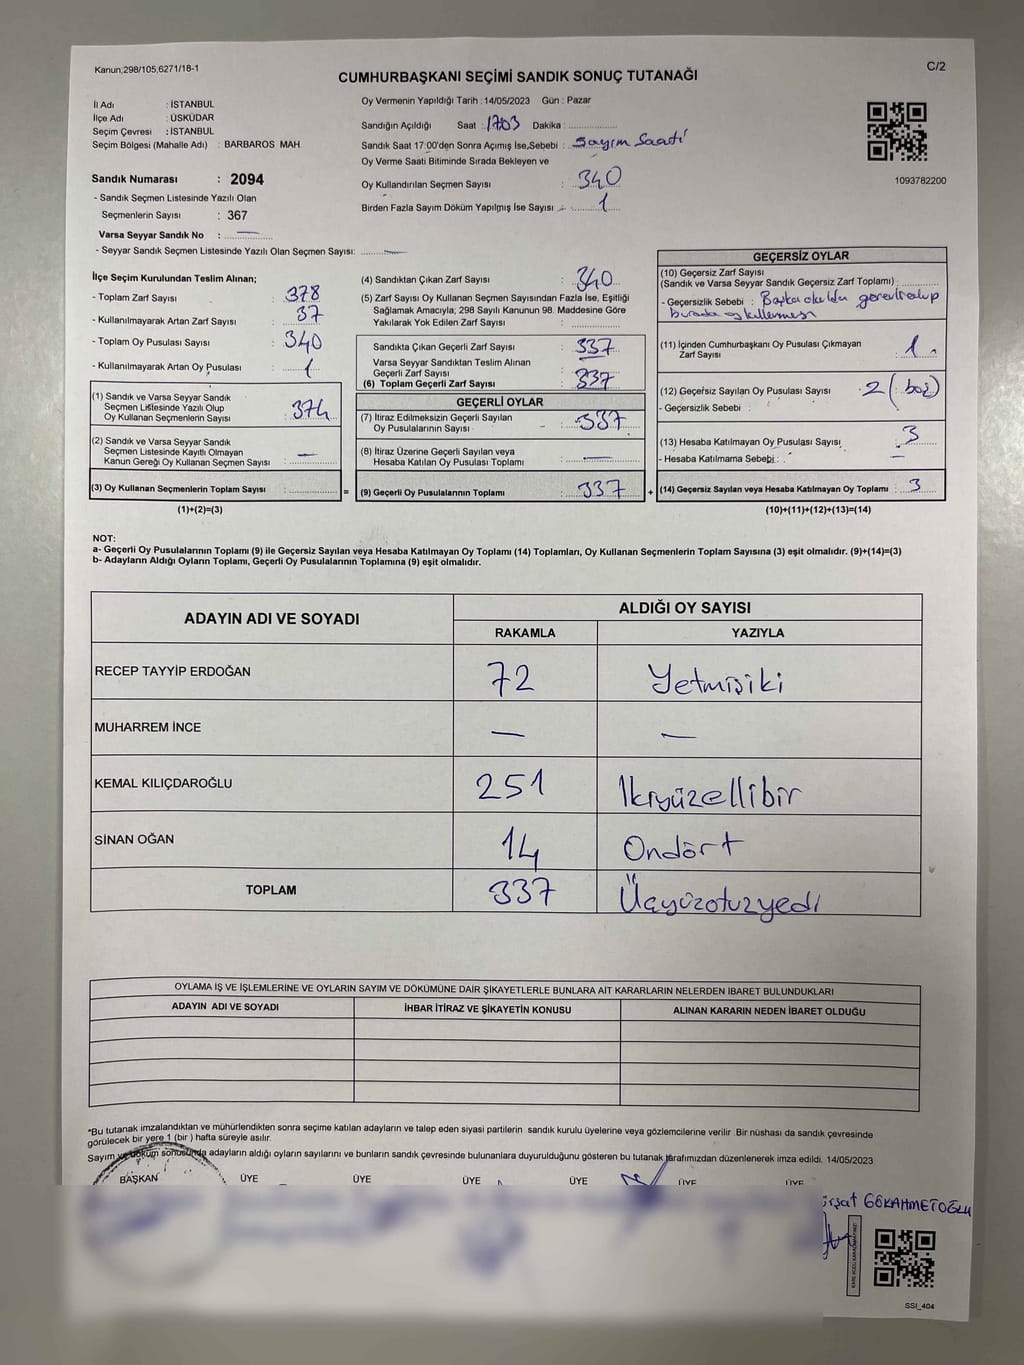 Kanun,298/105,6271/18-1
C/2
CUMHURBAŞKANI SEÇİMİ SANDIK SONUÇ TUTANAĞI
İl Adı : İSTANBUL
İlçe Adı : ÜSKÜDAR
Seçim Çevresi : İSTANBUL
Seçim Bölgesi (Mahalle Adı) : BARBAROS MAH.
Sandık Numarası : 2094
- Sandık Seçmen Listesinde Yazılı Olan
Seçmenlerin Sayısı : 367
Varsa Seyyar Sandık No : —
- Seyyar Sandık Seçmen Listesinde Yazılı Olan Seçmen Sayısı: —
Oy Vermenin Yapıldığı Tarih : 14/05/2023 Gün : Pazar
Sandığın Açıldığı Saat : 1703 Dakika :
Sandık Saat 17:00'den Sonra Açımış İse,Sebebi : Sayım Saati
Oy Verme Saati Bitiminde Sırada Bekleyen ve
Oy Kullandırılan Seçmen Sayısı : 340
Birden Fazla Sayım Döküm Yapılmış İse Sayısı : 1
1093782200
İlçe Seçim Kurulundan Teslim Alınan;
- Toplam Zarf Sayısı : 378
- Kullanılmayarak Artan Zarf Sayısı : 37
- Toplam Oy Pusulası Sayısı : 340
- Kullanılmayarak Artan Oy Pusulası : 1
(1) Sandık ve Varsa Seyyar Sandık
Seçmen Listesinde Yazılı Olup
Oy Kullanan Seçmenlerin Sayısı : 374
(2) Sandık ve Varsa Seyyar Sandık
Seçmen Listesinde Kayıtlı Olmayan
Kanun Gereği Oy Kullanan Seçmen Sayısı : —
(3) Oy Kullanan Seçmenlerin Toplam Sayısı :
(1)+(2)=(3)
(4) Sandıktan Çıkan Zarf Sayısı : 340
(5) Zarf Sayısı Oy Kullanan Seçmen Sayısından Fazla İse, Eşitliği
Sağlamak Amacıyla; 298 Sayılı Kanunun 98. Maddesine Göre
Yakılarak Yok Edilen Zarf Sayısı :
Sandıkta Çıkan Geçerli Zarf Sayısı : 337
Varsa Seyyar Sandıktan Teslim Alınan
Geçerli Zarf Sayısı
(6) Toplam Geçerli Zarf Sayısı : 337
GEÇERLİ OYLAR
(7) İtiraz Edilmeksizin Geçerli Sayılan
Oy Pusulalarının Sayısı : 337
(8) İtiraz Üzerine Geçerli Sayılan veya
Hesaba Katılan Oy Pusulası Toplamı : —
= (9) Geçerli Oy Pusulalarının Toplamı : 337 +
GEÇERSİZ OYLAR
(10) Geçersiz Zarf Sayısı
(Sandık ve Varsa Seyyar Sandık Geçersiz Zarf Toplamı) :
- Geçersizlik Sebebi : Başka okulda görevli olup
burada oy kullanması
(11) İçinden Cumhurbaşkanı Oy Pusulası Çıkmayan
Zarf Sayısı : 1
(12) Geçersiz Sayılan Oy Pusulası Sayısı : 2 (boş)
- Geçersizlik Sebebi :
(13) Hesaba Katılmayan Oy Pusulası Sayısı : 3
- Hesaba Katılmama Sebebi : —
(14) Geçersiz Sayılan veya Hesaba Katılmayan Oy Toplamı : 3
(10)+(11)+(12)+(13)=(14)
NOT:
a- Geçerli Oy Pusulalarının Toplamı (9) ile Geçersiz Sayılan veya Hesaba Katılmayan Oy Toplamı (14) Toplamları, Oy Kullanan Seçmenlerin Toplam Sayısına (3) eşit olmalıdır. (9)+(14)=(3)
b- Adayların Aldığı Oyların Toplamı, Geçerli Oy Pusulalarının Toplamına (9) eşit olmalıdır.
ADAYIN ADI VE SOYADI
ALDIĞI OY SAYISI
RAKAMLA YAZIYLA
RECEP TAYYİP ERDOĞAN 72 Yetmişiki
MUHARREM İNCE — —
KEMAL KILIÇDAROĞLU 251 İkiyüzellibir
SİNAN OĞAN 14 Ondört
TOPLAM 337 Üçyüzotuzyedi
OYLAMA İŞ VE İŞLEMLERİNE VE OYLARIN SAYIM VE DÖKÜMÜNE DAİR ŞİKAYETLERLE BUNLARA AİT KARARLARIN NELERDEN İBARET BULUNDUKLARI
ADAYIN ADI VE SOYADI İHBAR İTİRAZ VE ŞİKAYETİN KONUSU ALINAN KARARIN NEDEN İBARET OLDUĞU
*Bu tutanak imzalandıktan ve mühürlendikten sonra seçime katılan adayların ve talep eden siyasi partilerin sandık kurulu üyelerine veya gözlemcilerine verilir .Bir nüshası da sandık çevresinde
görülecek bir yere 1 (bir ) hafta süreyle asılır.
Sayım ve döküm sonucunda adayların aldığı oyların sayılarını ve bunların sandık çevresinde bulunanlara duyurulduğunu gösteren bu tutanak tarafımızdan düzenlenerek imza edildi. 14/05/2023
BAŞKAN ÜYE ÜYE ÜYE ÜYE ÜYE ÜYE
GÖKAHMETOĞLU
SSI_404